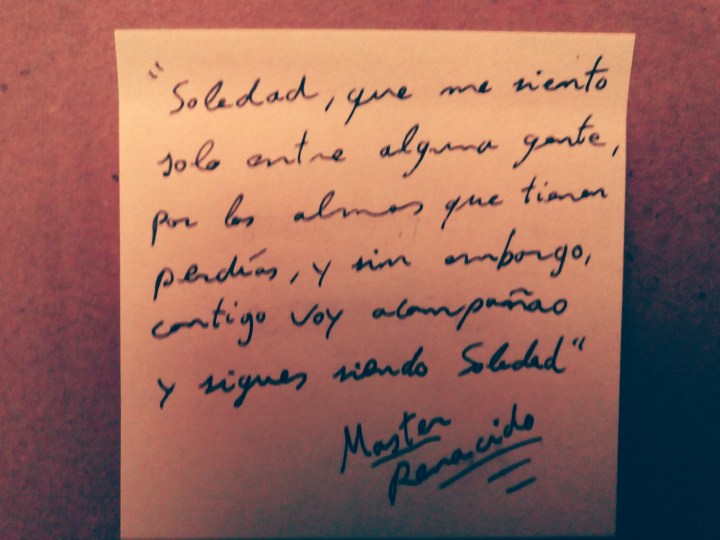 "Soledad, que me siento
solo entre alguna gente,
por las almas que tienen
perdías, y sin embargo,
contigo voy acompañao
y sigues siendo Soledad"
Master
Renacido